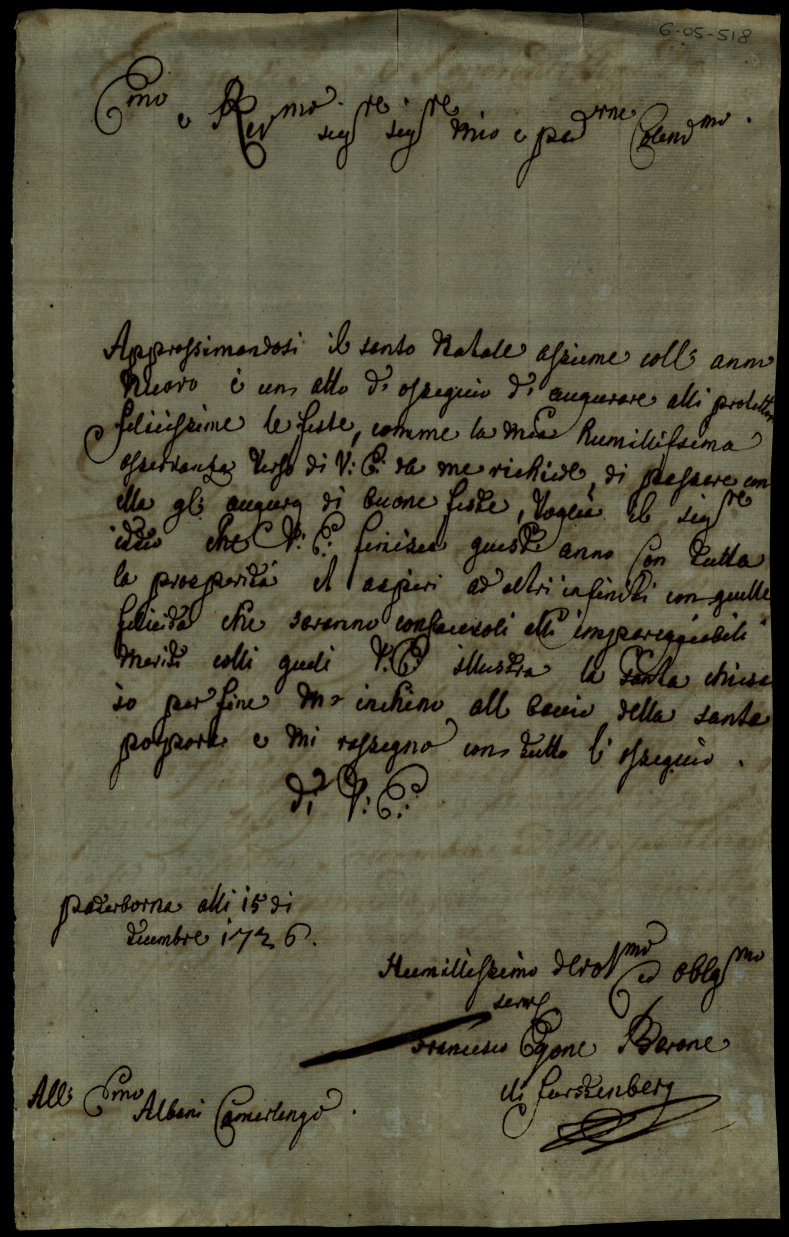 6-05-518
Emo e Revmo sigre sigre mio e padrne Colendmo.
Approssimandosi il santo Natale assieme coll' anno
nuovo è un atto d' ossequio d' augurare alli protettori
felicissime le feste, comme la mea humilissima
osservanza verso di V: E: da me richiede, di passare con
ella gl' augury di buone feste, voglia il sigre
iddio che V: E: finisca questo anno con tutta
la prosperità et aspiri ad altri infiniti con quelle
felicità che saranno confacevoli alli impareggiabili
meriti colli quali V: E: illustra la santa chiesa
io per fine m' inchino all bacio della santa
porpora e mi rassegno con tutto l' ossequio.
di V: E:
paderborna alli 15 di
decembre 1726.
Humilissimo devotmo ed oblgmo
serv
Francesco Egone Barone
di furstenberg
All' Emo Albani Camerlengo.